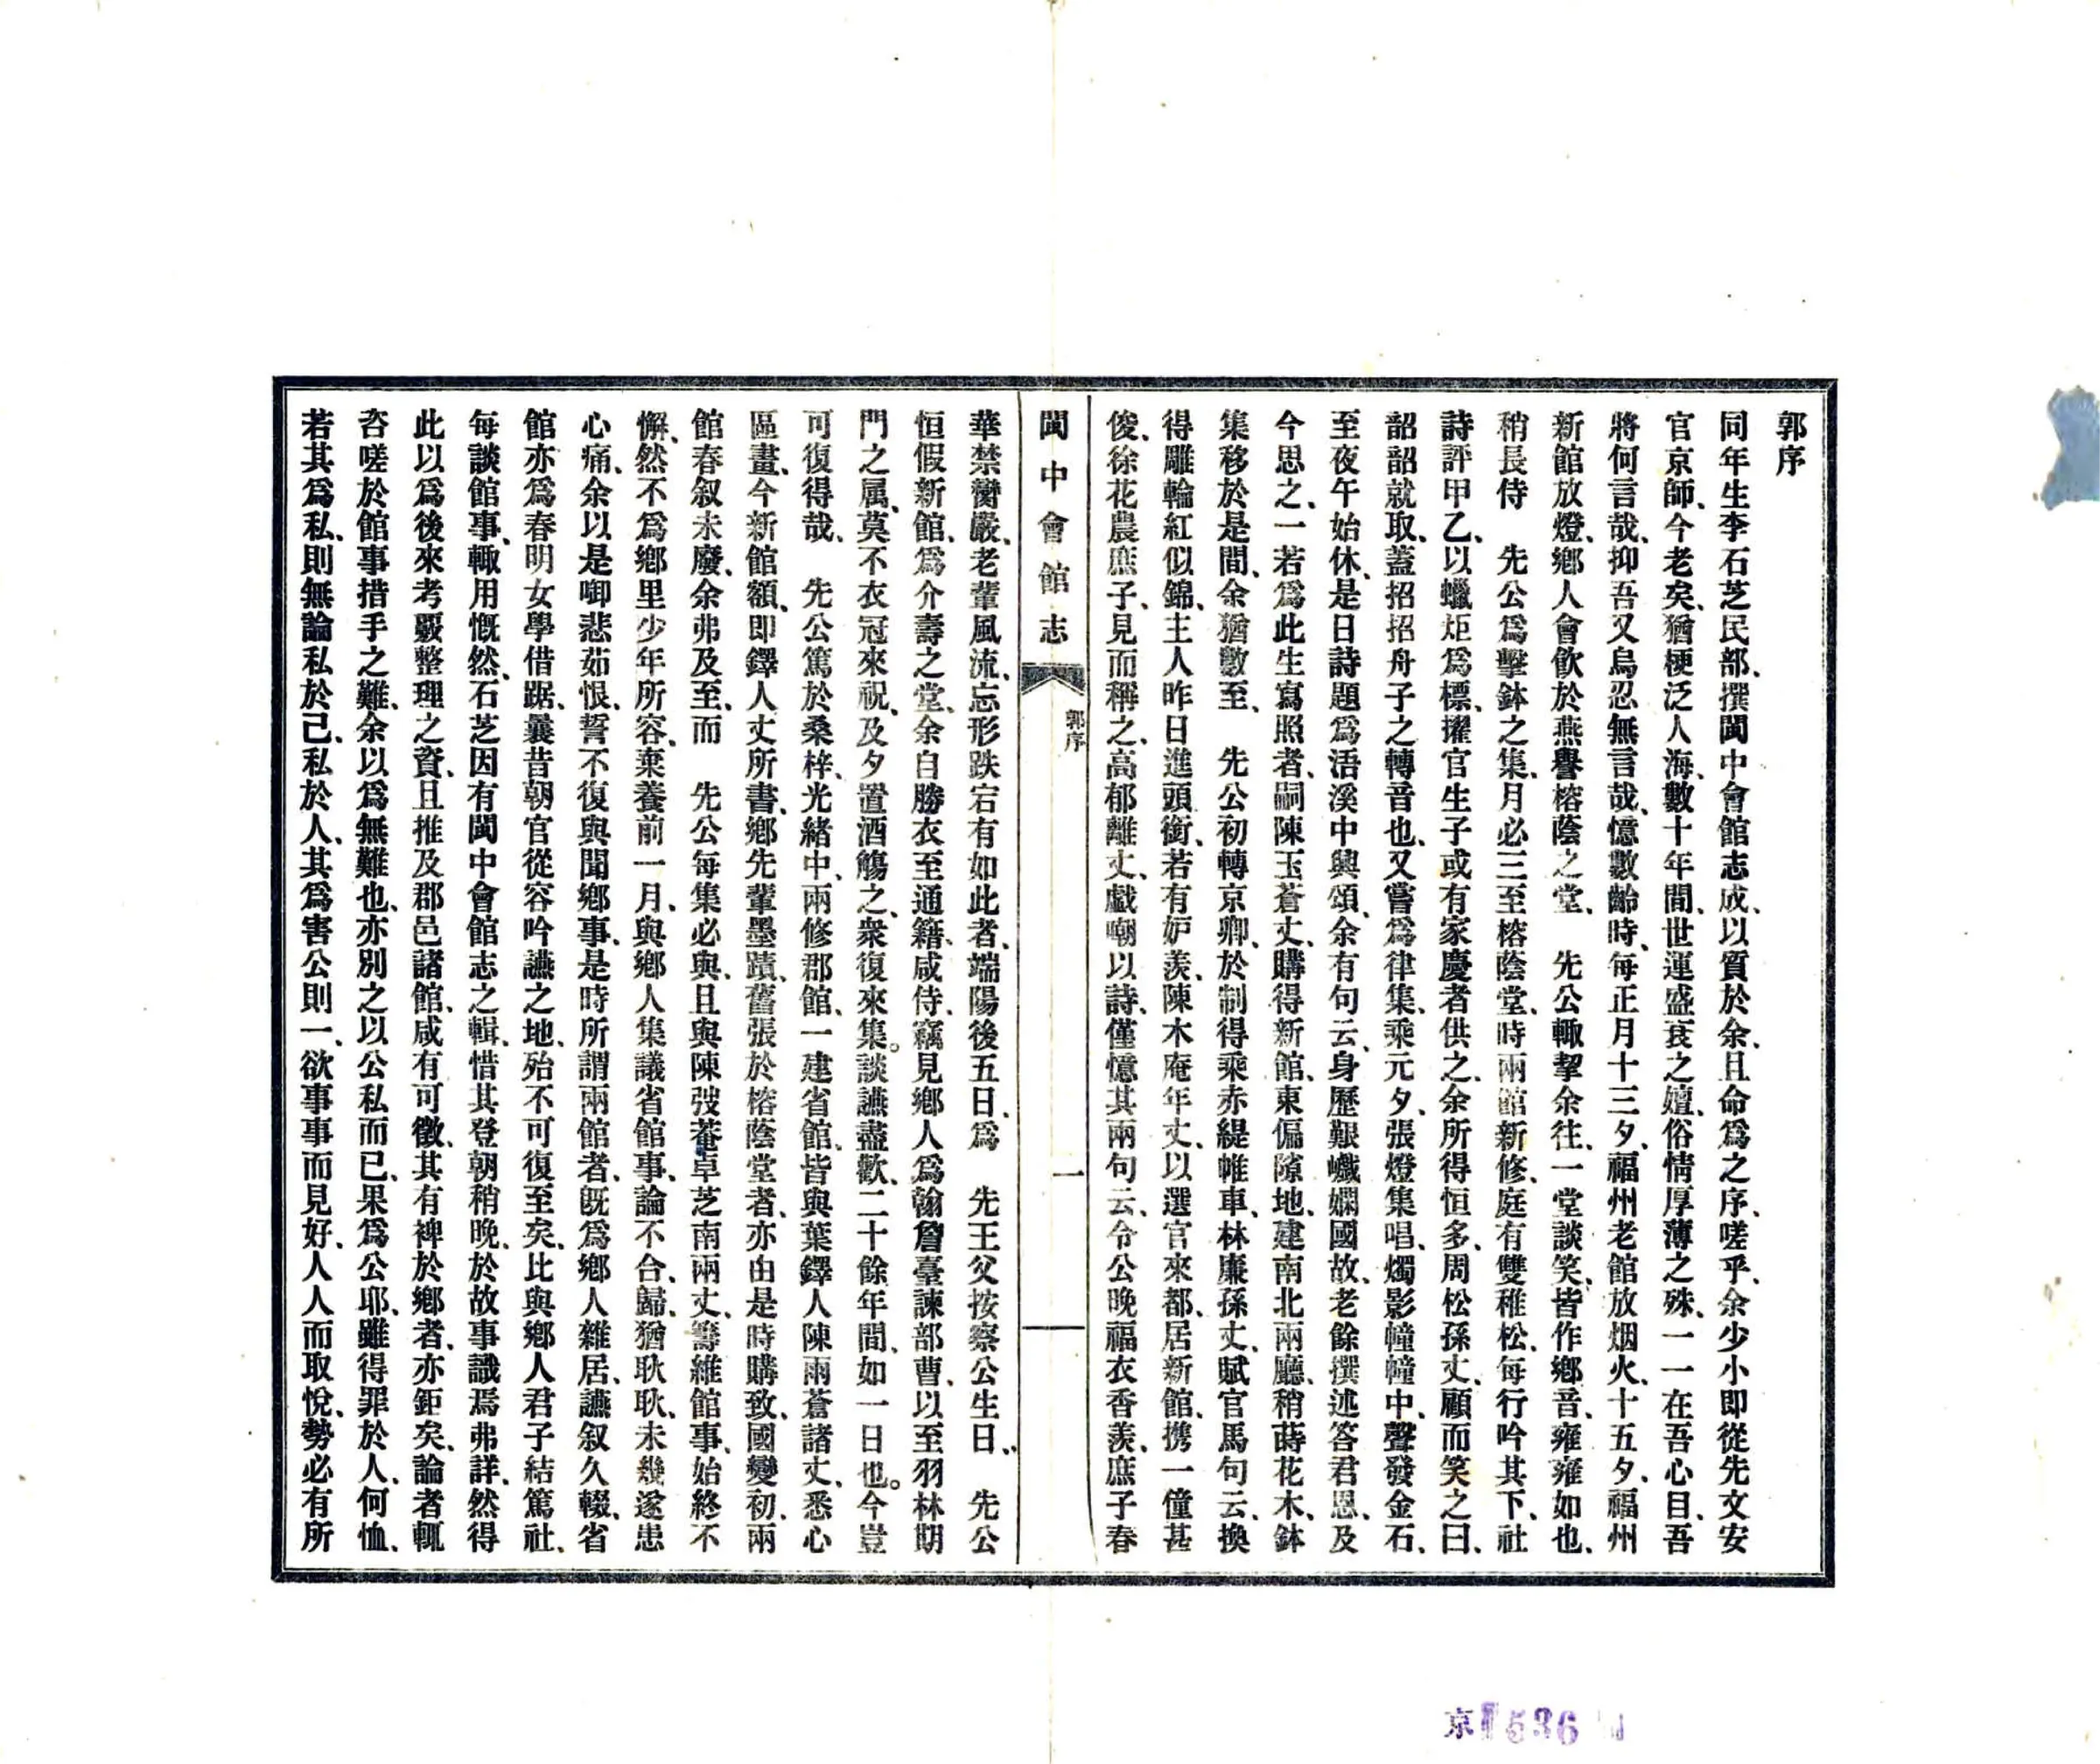 郭序
同年生李石芝民部、撰閩中會館志成、以質於余、且命爲之序、嗟乎、余少小即從先文安
官京師、今老矣、猶梗泛人海、數十年間、世運盛衰之嬗、俗情厚薄之殊、一一在吾心目、吾
將何言哉、抑吾又烏忍無言哉、憶數齡時、每正月十三夕、福州老館放烟火、十五夕、福州
新館放燈、鄉人會飲於燕譽榕蔭之堂、　先公輒挈余往、一堂談笑、皆作鄉音、雍雍如也、
稍長侍　先公爲擊鉢之集、月必三至榕蔭堂、時兩館新修、庭有雙稚松、每行吟其下、社
詩評甲乙、以蠟炬爲標、擢官生子或有家慶者供之、余所得恒多、周松孫丈、顧而笑之曰、
韶韶就取、蓋招招舟子之轉音也、又嘗爲律集、乘元夕、張燈集唱、燭影幢幢中、聲發金石、
至夜午始休、是日詩題爲浯溪中興頌、余有句云、身歷艱巇嫻國故、老餘撰述答君恩、及
今思之、一若爲此生寫照者、嗣陳玉蒼丈、購得新館東偏隙地、建南北兩廳、稍蒔花木、鉢
集移於是間、余猶數至、　先公初轉京卿、於制得乘赤緹帷車、林廉孫丈、賦官馬句云、換
得雕輪紅似錦、主人昨日進頭銜、若有妒羡、陳木庵年丈、以選官來都、居新館、携一僮甚
俊、徐花農庶子、見而稱之、高郁離丈、戲嘲以詩、僅憶其兩句云、令公晚福衣香羡、庶子春
閩中會館志
郭序
一
華禁臠嚴、老輩風流、忘形跌宕有如此者、端陽後五日、爲　先王父按察公生日、　先公
恒假新館、爲介壽之堂、余自勝衣至通籍、咸侍、竊見鄉人爲翰詹臺諫部曹、以至羽林期
門之属、莫不衣冠來祝、及夕置酒觴之、衆復來集。談讌盡歡、二十餘年間、如一日也。今豈
可復得哉、　先公篤於桑梓、光緒中、兩修郡館、一建省館、皆與葉鐸人陳雨蒼諸丈、悉心
區畫、今新館額、即鐸人丈所書、鄉先輩墨蹟、舊張於榕蔭堂者、亦由是時購致、國變初、兩
館春叙未廢、余弗及至、而　先公每集必與、且與陳弢菴卓芝南兩丈、籌維館事、始終不
懈、然不爲鄉里少年所容、棄養前一月、與鄉人集議省館事、論不合、歸、猶耿耿、未幾遂患
心痛、余以是啣悲茹恨、誓不復與聞鄉事、是時所謂兩館者、旣爲鄉人雜居、讌叙久輟、省
館亦爲春明女學借踞、曩昔朝官從容吟讌之地、殆不可復至矣、比與鄉人君子結篤社、
每談館事、輒用慨然、石芝因有閩中會館志之輯、惜其登朝稍晚、於故事識焉弗詳、然得
此以爲後來考覈整理之資、且推及郡邑諸館、咸有可徵、其有裨於鄉者、亦鉅矣、論者輒
咨嗟於館事措手之難、余以爲無難也、亦別之以公私而已、果爲公耶、雖得罪於人、何恤、
若其爲私、則無論私於己、私於人、其爲害公則一、欲事事而見好、人人而取悅、勢必有所
京
536